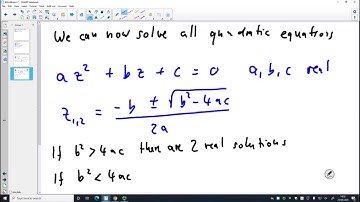 We can now solve all quadratic equations
a z² + b z + c = 0 a, b, c real
z₁,₂ = (-b ± √(b² - 4ac)) / 2a
If b² > 4ac then are 2 real solutions
If b² < 4ac